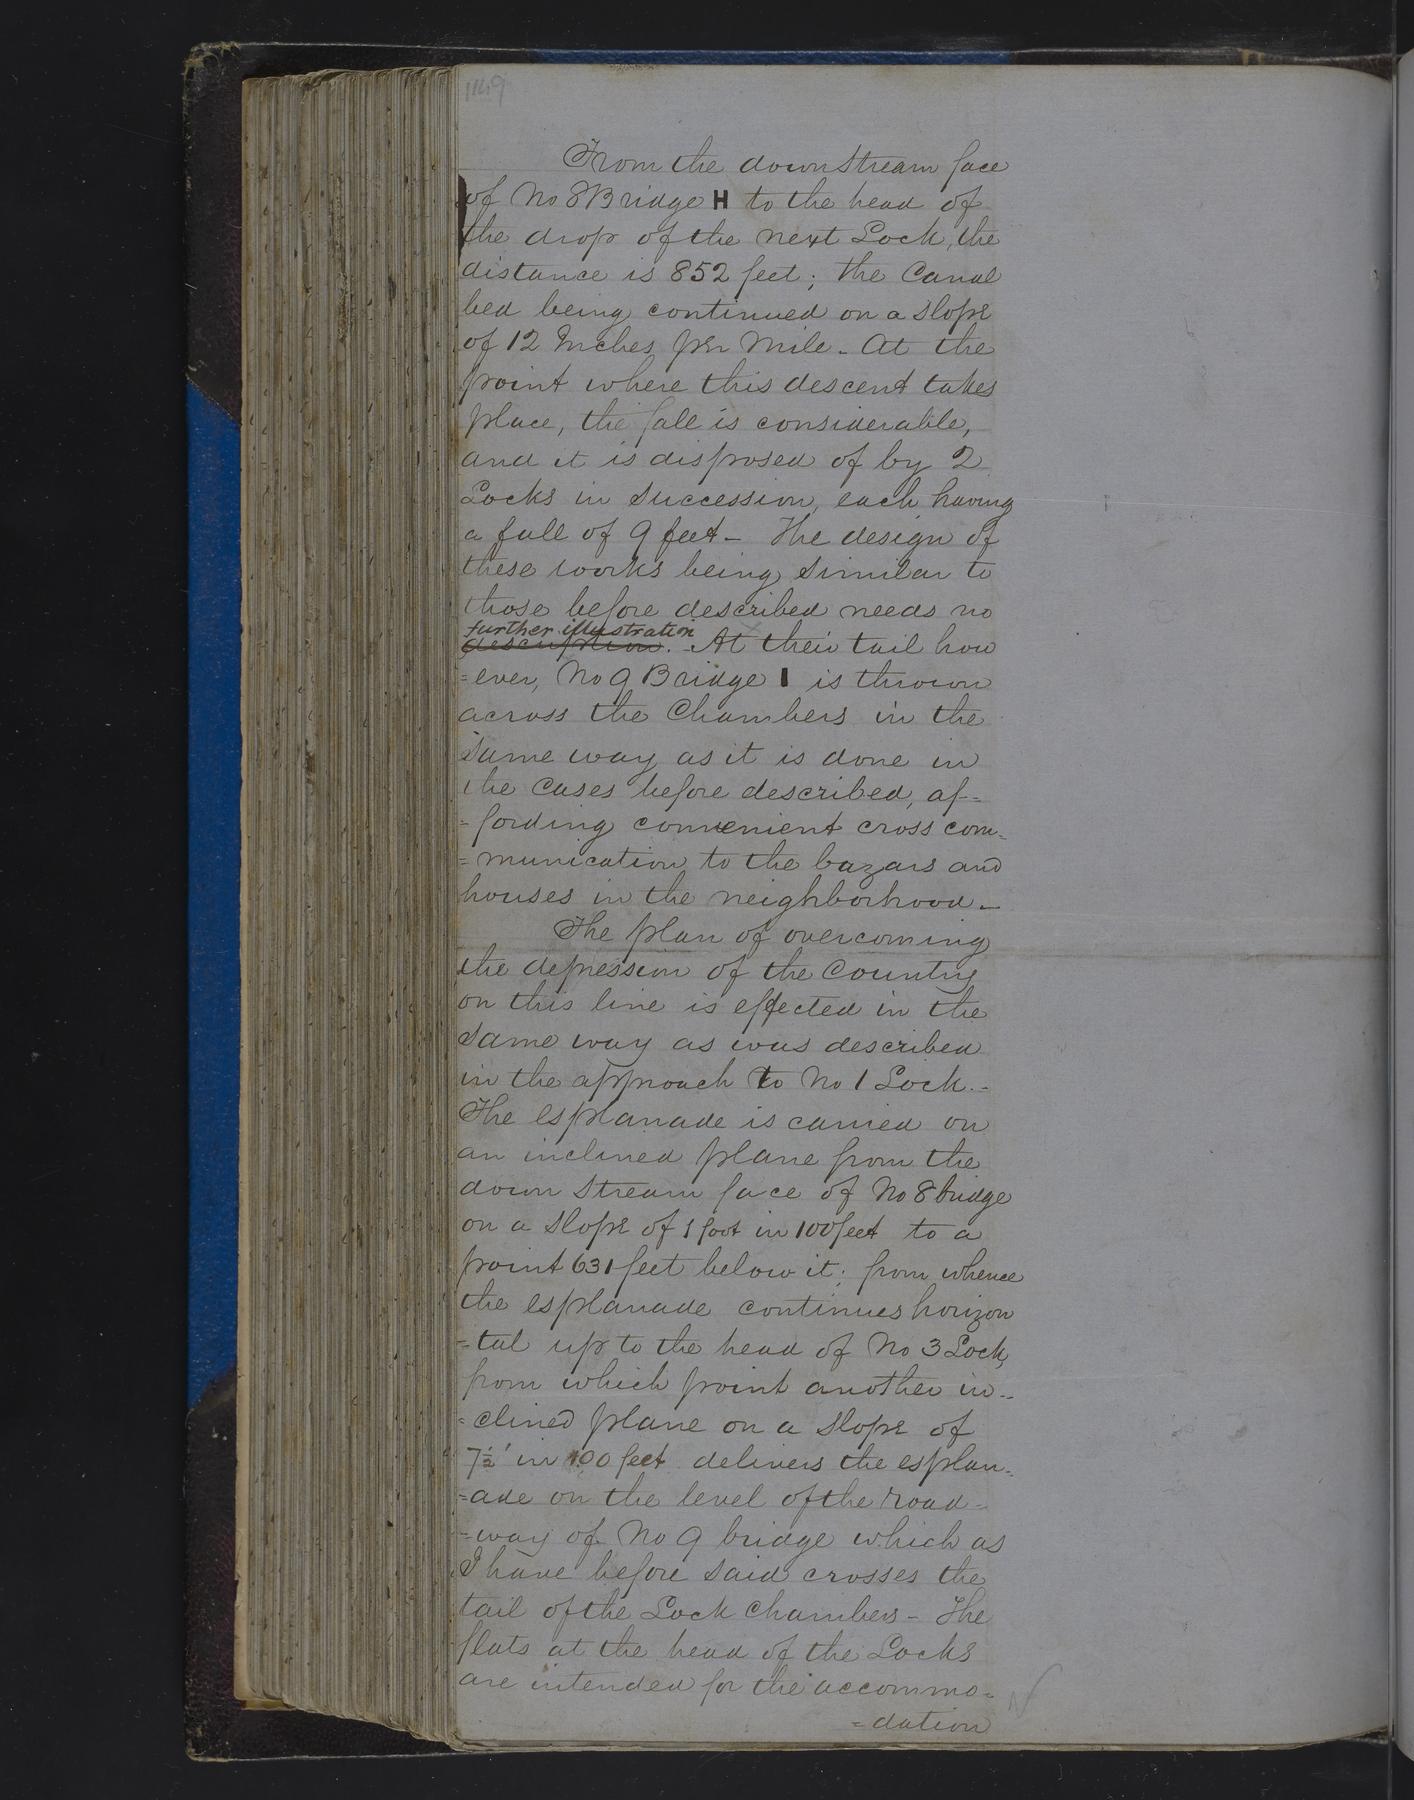 1149
From the down stream face
of No 8 Bridge H to the head of
the drop of the next Lock, the
distance is 852 feet; the Canal
bed being continued on a slope
of 12 Inches per Mile. At the
point where this descent takes
place, the fall is considerable,
and it is disposed of by 2
Locks in succession, each having
a fall of 9 feet - The design of
these works being similar to
those before described needs no
further illustration
description. - At their tail how
=ever, No 9 Bridge I is thrown
across the Chambers in the
same way as it is done in
the cases before described, af-
=fording convenient cross com-
=munication to the bazars and
houses in the neighborhood. -
The plan of overcoming
the depression of the Country
on this line is effected in the
same way as was described
in the approach to No 1 Lock. -
The esplanade is carried on
an inclined plane from the
down stream face of No 8 bridge
on a slope of 1 foot in 100 feet to a
point 631 feet below it; from whence
the esplanade continues horizon
=tal up to the head of No 3 Lock,
from which point another in-
=clined plane on a slope of
7½' in 100 feet delivers the esplan-
=ade on the level of the road-
=way of No 9 bridge which as
I have before said crosses the
tail of the Lock Chambers - The
flats at the head of the Locks
are intended for the accommo-
=dation